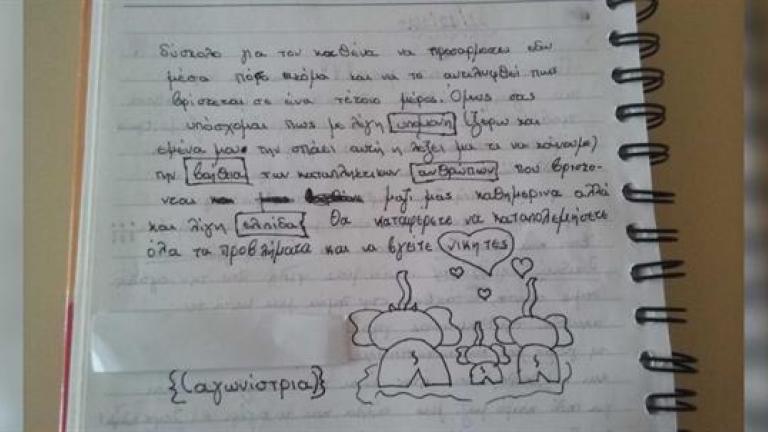 δύσκολο για τον καθένα να προσαρμοστει εδω
μέσα πόσο ακόμα και να το αντιληφθεί πως
βρίσκεται σε ένα τέτοιο μέρος. Όμως σας
υπόσχομαι πως με λίγη υπομονή (ξέρω και
εμένα μου την σπάει αυτη η λέξει μα τι να κάνουμε)
την βοήθεια των καταπληκτικων ανθρώπων που βρισκο-
νται μαζι μας καθημερινα αλλά
και λίγη ελπίδα θα καταφερετε να καταπολεμήσετε
όλα τα προβλήματα και να βγείτε νικητες
{(αγωνίστρια)}